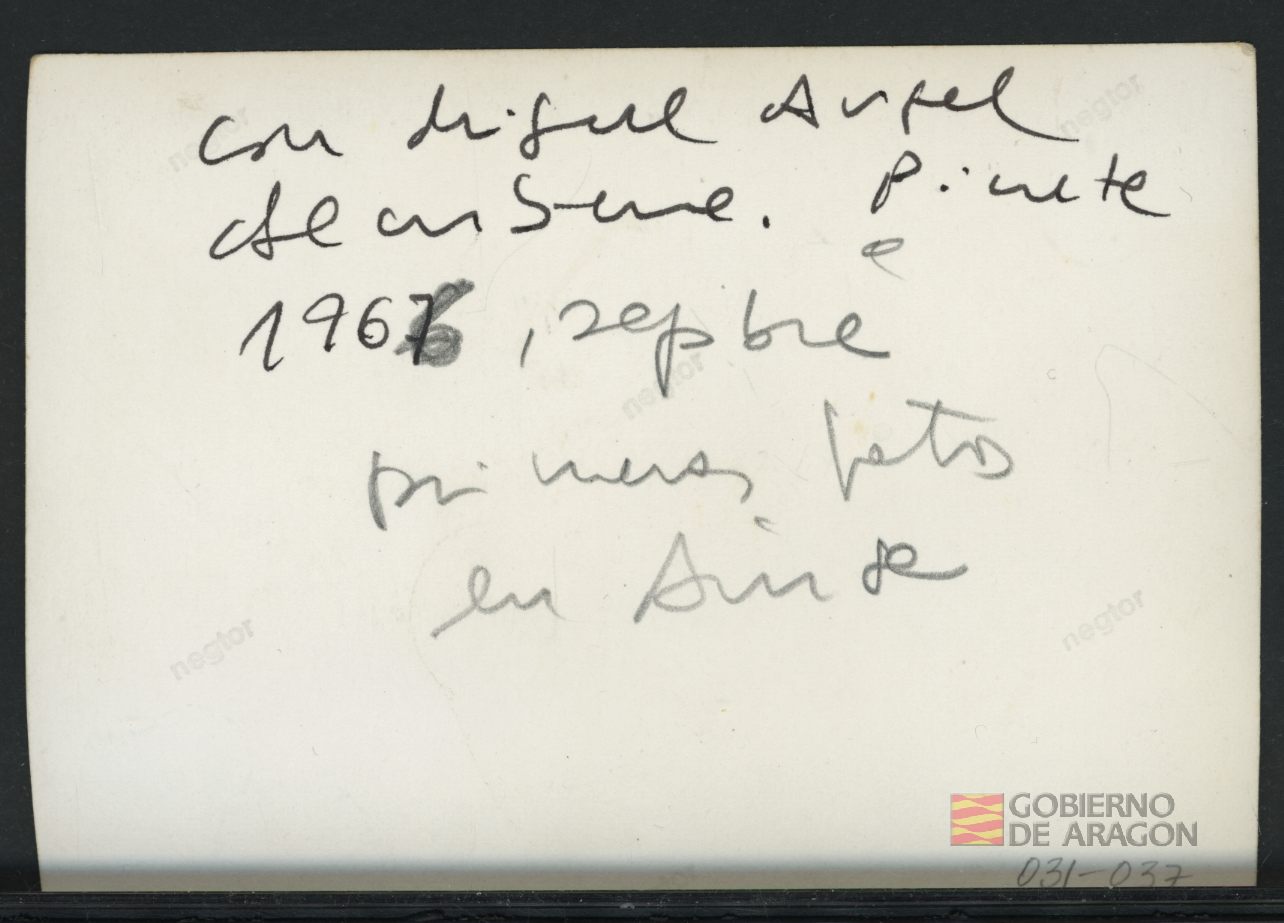 con Miguel Angel
Pineta
1966, sepbre
primeras fotos
en Ainsa
negtor
negtor
negtor
negtor
negtor
GOBIERNO
DE ARAGON
031-037